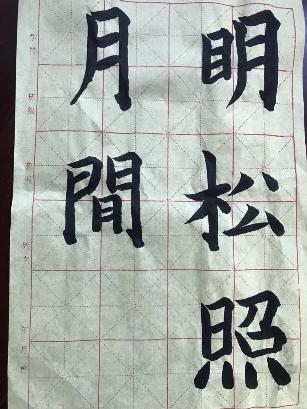 明月
松間
照